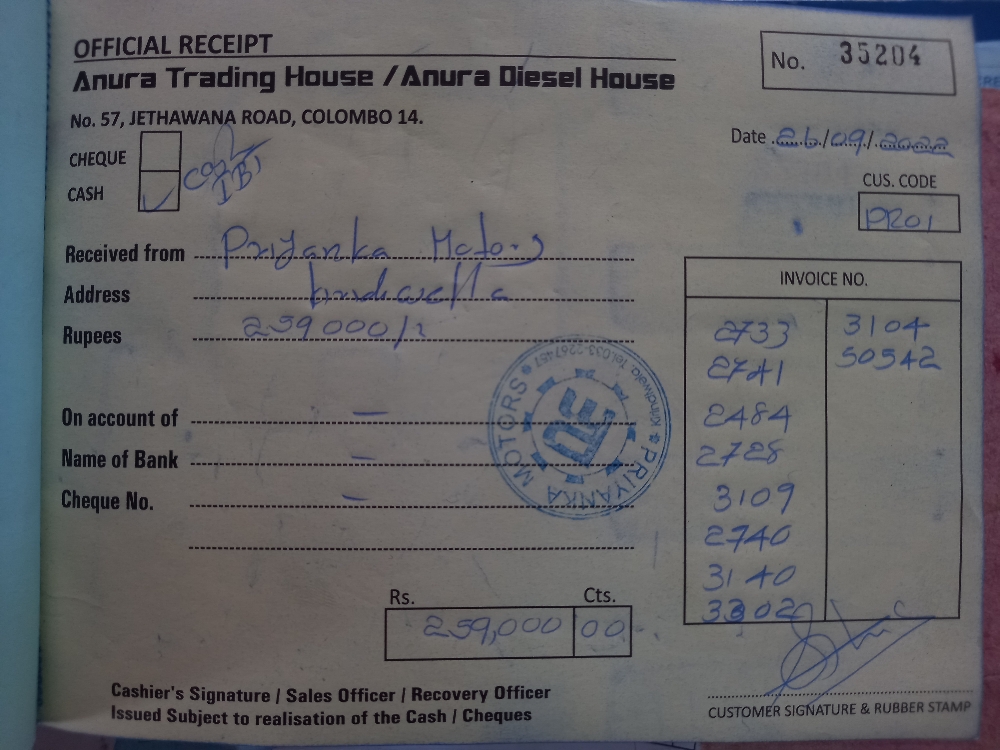 OFFICIAL RECEIPT
No. 35204
Anura Trading House / Anura Diesel House
No. 57, JETHAWANA ROAD, COLOMBO 14.
Date 26/09/2022
CHEQUE
CASH ✓
CUS. CODE
PR01
Received from Priyanka Motors
Address
Rupees 259000/=
On account of —
Name of Bank —
Cheque No. —
INVOICE NO.
2733 3104
2741 50542
2484
2728
3109
2740
3140
3302
PRIYANKA MOTORS * Kindiwela. Tel:033-2267457 *
Rs. Cts.
259,000 00
Cashier's Signature / Sales Officer / Recovery Officer
Issued Subject to realisation of the Cash / Cheques
CUSTOMER SIGNATURE & RUBBER STAMP